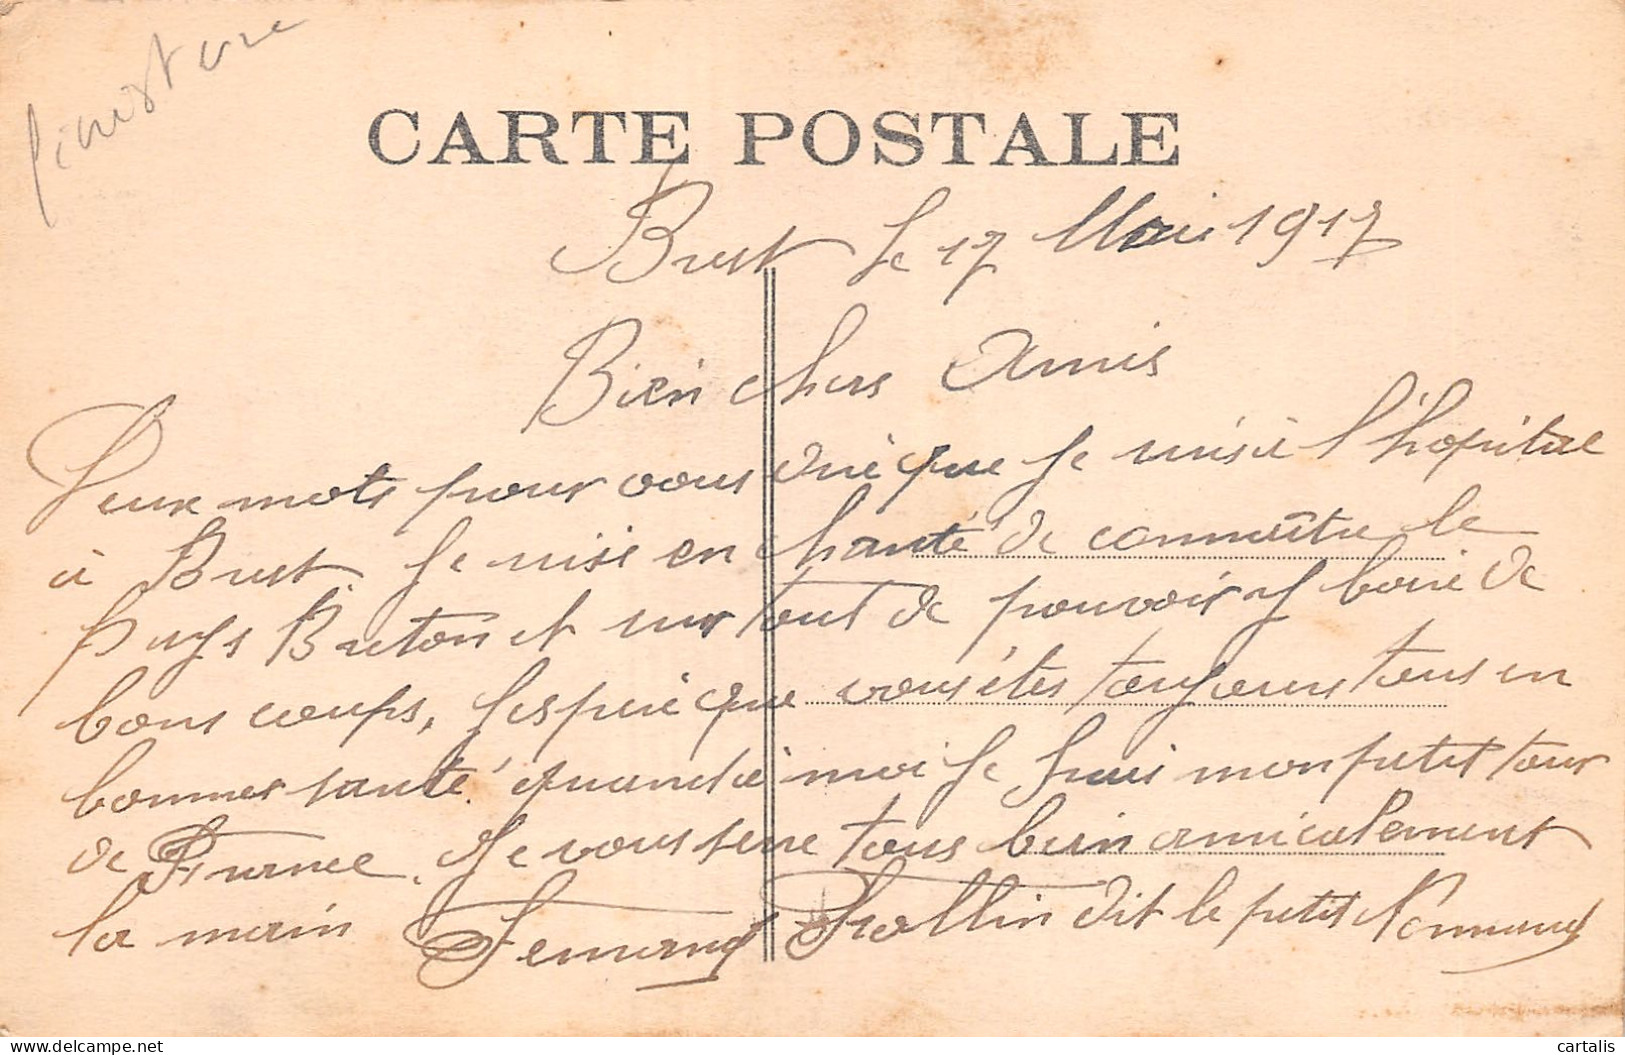 finistere
CARTE POSTALE
Brest le 17 Mai 1917
Bien chers Amis
Deux mots pour vous dire que je suis à l'hopital
à Brest. Je suis en chanté de connaître le
pays Breton et sur tout de pouvoir y boire de
bons coups, j'espére que vous étes toujours tous en
bonnes santé quand à moi je fais mon petit tour
de France. Je vous serre tous bien amicalement
la main Fernand Trollin dit le petit Normand
cartalis
delcampe.net